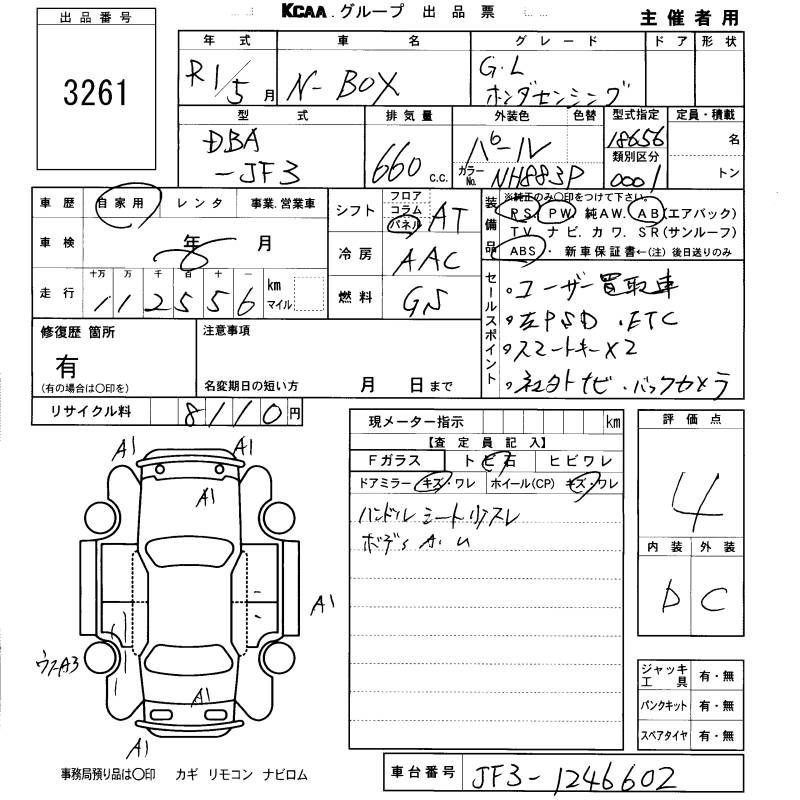 出品番号
KCAA.グループ 出品票
主催者用
3261
年式 車名 グレード ドア 形状
R1/5月 N-BOX G・L
ホンダセンシング
型式 排気量 外装色 色替 型式指定 定員・積載
DBA
-JF3
660 c.c.
パール
カラーNo. NH883P
18656
類別区分
0001
名
トン
車歴 自家用 レンタ 事業.営業車
車検 年 月
走行 十万 万 千 百 十 一
112556 km
マイル
シフト フロア
コラム
パネル
AT
冷房 AAC
燃料 GS
装備品 ※純正のみ〇印をつけて下さい。
PS PW 純AW. AB(エアバック)
TV ナビ.カワ.SR(サンルーフ)
ABS・ 新車保証書←(注) 後日送りのみ
セールスポイント
・ユーザー買取車
・左PSD ・ETC
・スマートキー×2
・社外ナビ・バックカメラ
修復歴 箇所
有
(有の場合は〇印を)
注意事項
名変期日の短い方 月 日まで
リサイクル料 8110円
現メーター指示 km
【査定員記入】
Fガラス トビ石 ヒビワレ
ドアミラー キズ・ワレ ホイール(CP) キズ・ワレ
ハンドル シートリ スレ
ボデー A.U
評価点
4
内装 外装
D C
A1 A1
A1
A1
A3
A1
A1 A1
ジャッキ
工具 有・無
パンクキット 有・無
スペアタイヤ 有・無
事務局預り品は〇印 カギ リモコン ナビロム
車台番号 JF3-1246602